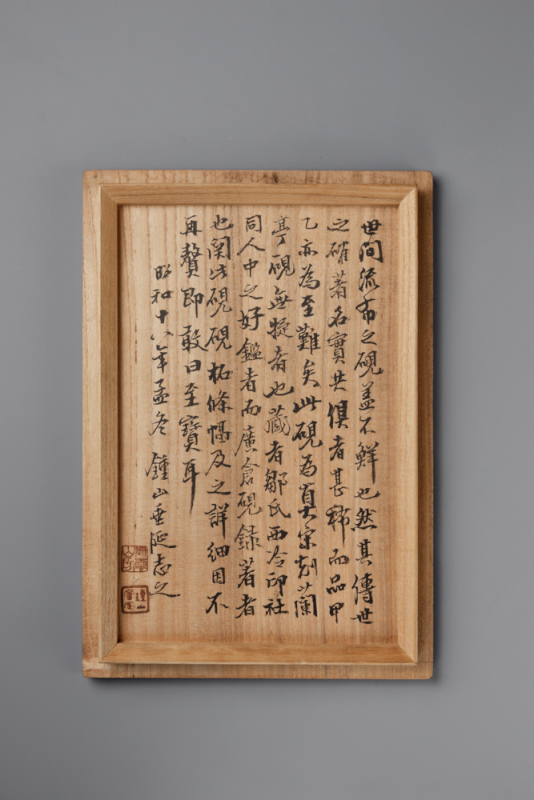 世間流布之硯蓋不鮮也然其傳世
之確著名實共俱者甚稀而品甲
乙亦為至難矣此硯為真宋刻蘭
亭硯無疑者也藏者鄒氏西泠印社
同人中之好鑑者而廣倉硯錄著者
也関此硯硯拓條幅及之詳細因不
再贅即敢曰至寶耳
昭和十八年孟冬 鍾山垂延志之